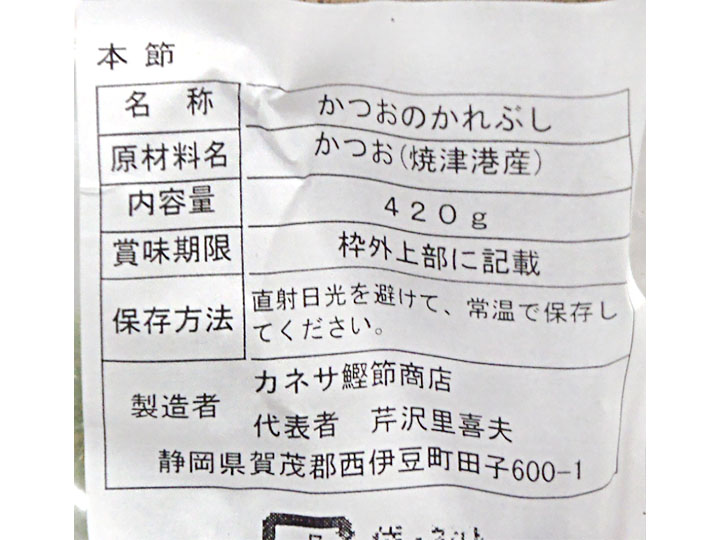 本節
名称 かつおのかれぶし
原材料名 かつお(焼津港産)
内容量 420g
賞味期限 枠外上部に記載
保存方法 直射日光を避けて、常温で保存し
てください。
製造者 カネサ鰹節商店
代表者 芹沢里喜夫
静岡県賀茂郡西伊豆町田子600-1